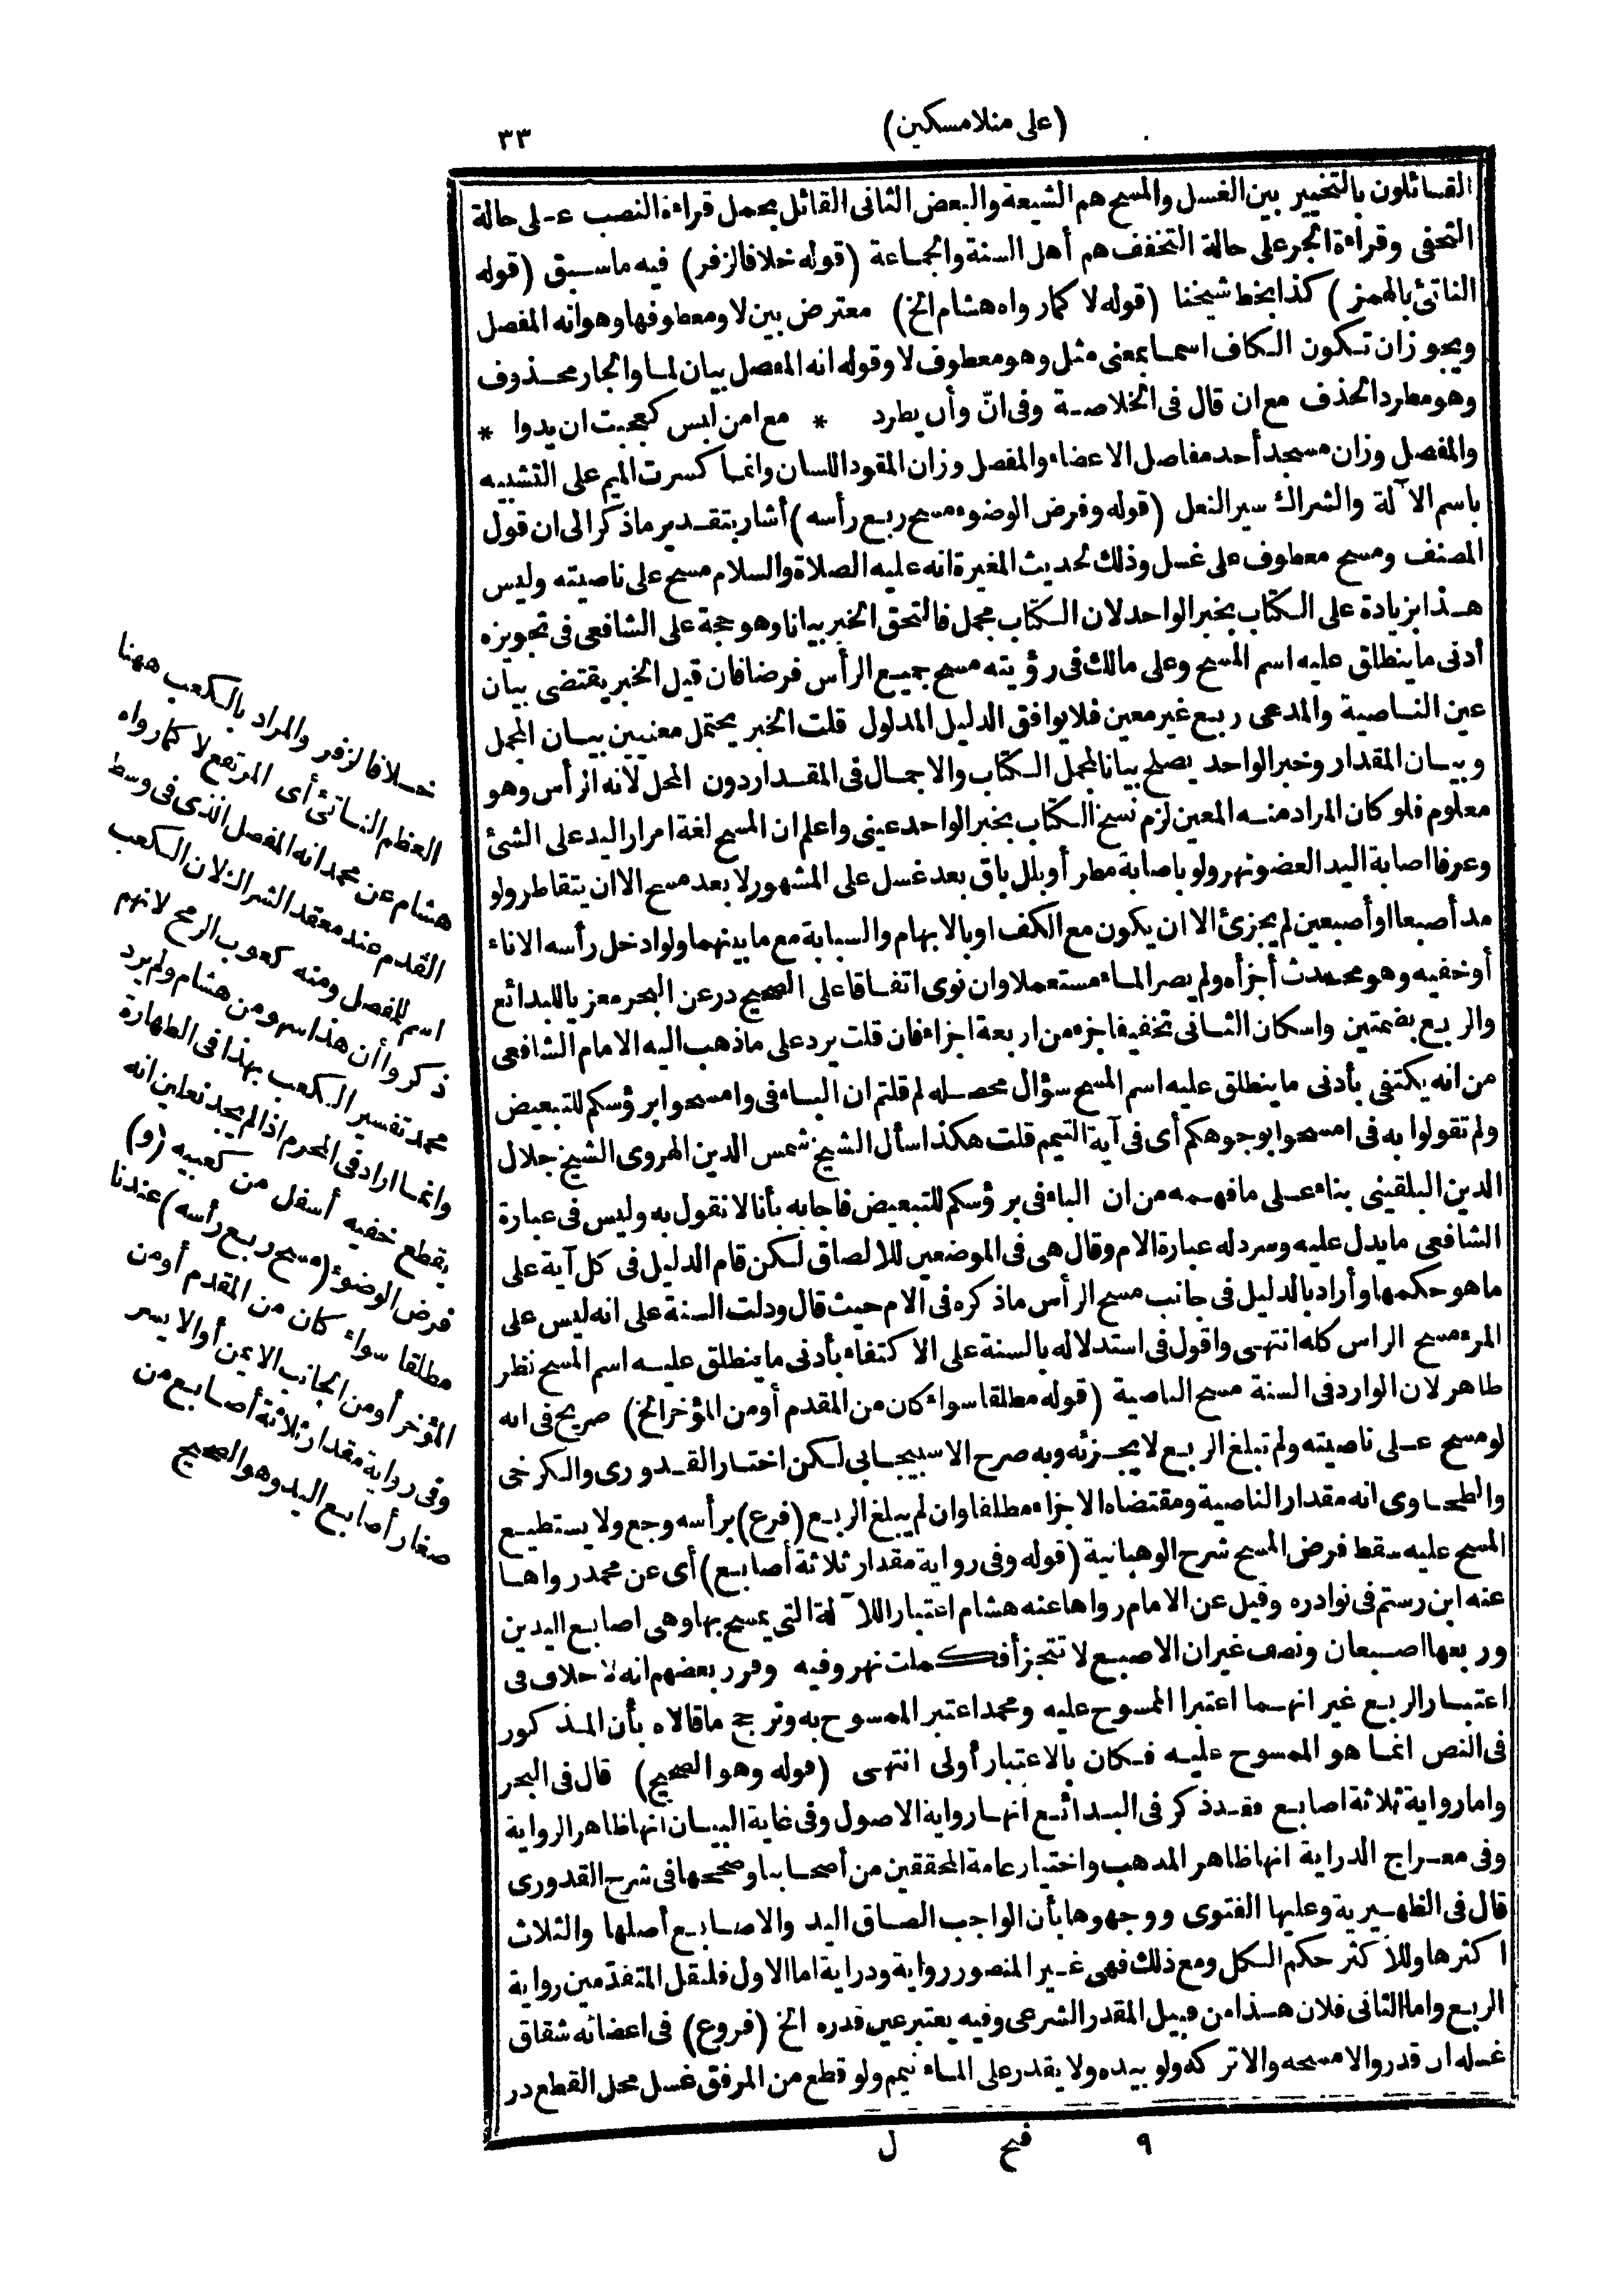 (على منلا مسكين)
٣٣
القائلون بالتخيير بين الغسل والمسح هم الشيعة والبعض الثانى القائل بحمل قراءة النصب على حالة
التحفى وقراءة الجر على حالة التخفف هم أهل السنة والجماعة (قوله خلافا لزفر) فيه ما سبق (قوله
الناتئ بالهمز) كذا بخط شيخنا (قوله لا كما رواه هشام الخ) معترض بين لا ومعطوفها وهو انه المفصل
ويجوز ان تكون الكاف اسما بمعنى مثل وهو معطوف لا وقوله انه المفصل بيان لما والجار محذوف
وهو مطرد الحذف مع ان قال فى الخلاصة وفى انّ وأن يطرد * مع امن لبس كعجبت ان يدوا *
والمفصل وزان مسجد أحد مفاصل الاعضاء والمفصل وزان المقود اللسان وانما كسرت الميم على التشبيه
باسم الآلة والشراك سير النعل (قوله وفرض الوضوء مسح ربع رأسه) أشار بتقدير ما ذكر الى ان قول
المصنف ومسح معطوف على غسل وذلك لحديث المغيرة انه عليه الصلاة والسلام مسح على ناصيته وليس
هذا بزيادة على الكتاب بخبر الواحد لان الكتاب مجمل فالتحق الخبر بيانا وهو حجة على الشافعى فى تجويزه
أدنى ما ينطلق عليه اسم المسح وعلى مالك فى رؤيته مسح جميع الرأس فرضا فان قيل الخبر يقتضى بيان
عين الناصية والمدعى ربع غير معين فلا يوافق الدليل المدلول قلت الخبر يحتمل معنيين بيان المجمل
وبيان المقدار وخبر الواحد يصلح بيانا لمجمل الكتاب والاجمال فى المقدار دون المحل لأنه الرأس وهو
معلوم فلو كان المراد منه المعين لزم نسخ الكتاب بخبر الواحد عينى واعلم ان المسح لغة امرار اليد على الشئ
وعرفا اصابة اليد العضو نهر ولو باصابة مطر أو بلل باق بعد غسل على المشهور لا بعد مسح الا ان يتقاطر ولو
مد أصبعا او أصبعين لم يجزئ الا ان يكون مع الكف او بالابهام والسبابة مع ما بينهما ولو ادخل رأسه الاناء
أو خفيه وهو محدث أجزأه ولم يصر الماء مستعملا وان نوى اتفاقا على الصحيح در عن البحر معزيا للبدائع
والربع بضمتين واسكان الثانى تخفيفا جزء من اربعة اجزاء فان قلت يرد على ما ذهب اليه الامام الشافعى
من انه يكتفى بأدنى ما ينطلق عليه اسم المسح سؤال محصله لم قلتم ان الباء فى وامسحوا برؤسكم للتبعيض
ولم تقولوا به فى امسحوا بوجوهكم أى فى آية التيمم قلت هكذا سأل الشيخ شمس الدين الهروى الشيخ جلال
الدين البلقينى بناء على ما فهمه من ان الباء فى برؤسكم للتبعيض فاجابه بأنا لا نقول به وليس فى عبارة
الشافعى ما يدل عليه وسرد له عبارة الام وقال هى فى الموضعين للالصاق لكن قام الدليل فى كل آية على
ما هو حكمها وأراد بالدليل فى جانب مسح الرأس ما ذكره فى الام حيث قال ودلت السنة على انه ليس على
المرء مسح الراس كله انتهى واقول فى استدلاله بالسنة على الاكتفاء بأدنى ما ينطلق عليه اسم المسح نظر
ظاهر لان الوارد فى السنة مسح الناصية (قوله مطلقا سواء كان من المقدم أو من المؤخر الخ) صريح فى انه
لو مسح على ناصيته ولم تبلغ الربع لا يجزئه وبه صرح الاسبيجابى لكن اختار القدورى والكرخى
والطحاوى انه مقدار الناصية ومقتضاه الاجزاء مطلقا وان لم يبلغ الربع (فرع) برأسه وجع ولا يستطيع
المسح عليه سقط فرض المسح شرح الوهبانية (قوله وفى رواية مقدار ثلاثة أصابع) أى عن محمد رواها
عنه ابن رستم فى نوادره وقيل عن الامام رواها عنه هشام اعتبارا للآلة التى يمسح بها وهى اصابع اليدين
وربعها اصبعان ونصف غير ان الاصبع لا تتجزأ فكملت نهر وفيه وقرر بعضهم انه لا خلاف فى
اعتبار الربع غير انهما اعتبرا الممسوح عليه ومحمد اعتبر الممسوح به وترجح ما قالاه بأن المذكور
فى النص انما هو الممسوح عليه فكان بالاعتبار أولى انتهى (قوله وهو الصحيح) قال فى البحر
واما رواية ثلاثة اصابع فقد ذكر فى البدائع انها رواية الاصول وفى غاية البيان انها ظاهر الرواية
وفى معراج الدراية انها ظاهر المذهب واختيار عامة المحققين من أصحابنا وصححها فى شرح القدورى
قال فى الظهيرية وعليها الفتوى ووجهوها بأن الواجب الصاق اليد والاصابع أصلها والثلاث
اكثرها وللأكثر حكم الكل ومع ذلك فهى غير المنصور رواية ودراية اما الاول فلنقل المتقدمين رواية
الربع واما الثانى فلان هذا من قبيل المقدر الشرعى وفيه يعتبر عين قدره الخ (فروع) فى اعضائه شقاق
غسله ان قدر والا مسحه والا تركه ولو بيده ولا يقدر على الماء تيمم ولو قطع من المرفق غسل محل القطع در
خلافا لزفر والمراد بالكعب ههنا
العظم الناتئ أى المرتفع لا كما رواه
هشام عن محمد انه المفصل الذى فى وسط
القدم عند معقد الشراك لان الكعب
اسم للمفصل ومنه كعوب الرمح لانهم
ذكروا أن هذا سهو من هشام ولم يرد
محمد تفسير الكعب بهذا فى الطهارة
وانما اراد فى المحرم اذا لم يجد نعلين انه
يقطع خفيه أسفل من كعبيه (و)
فرض الوضوء (مسح ربع رأسه) عندنا
مطلقا سواء كان من المقدم أو من
المؤخر أو من الجانب الايمن أو الايسر
وفى رواية مقدار ثلاثة أصابع من
صغار أصابع اليد وهو الصحيح
٩ فتح ل